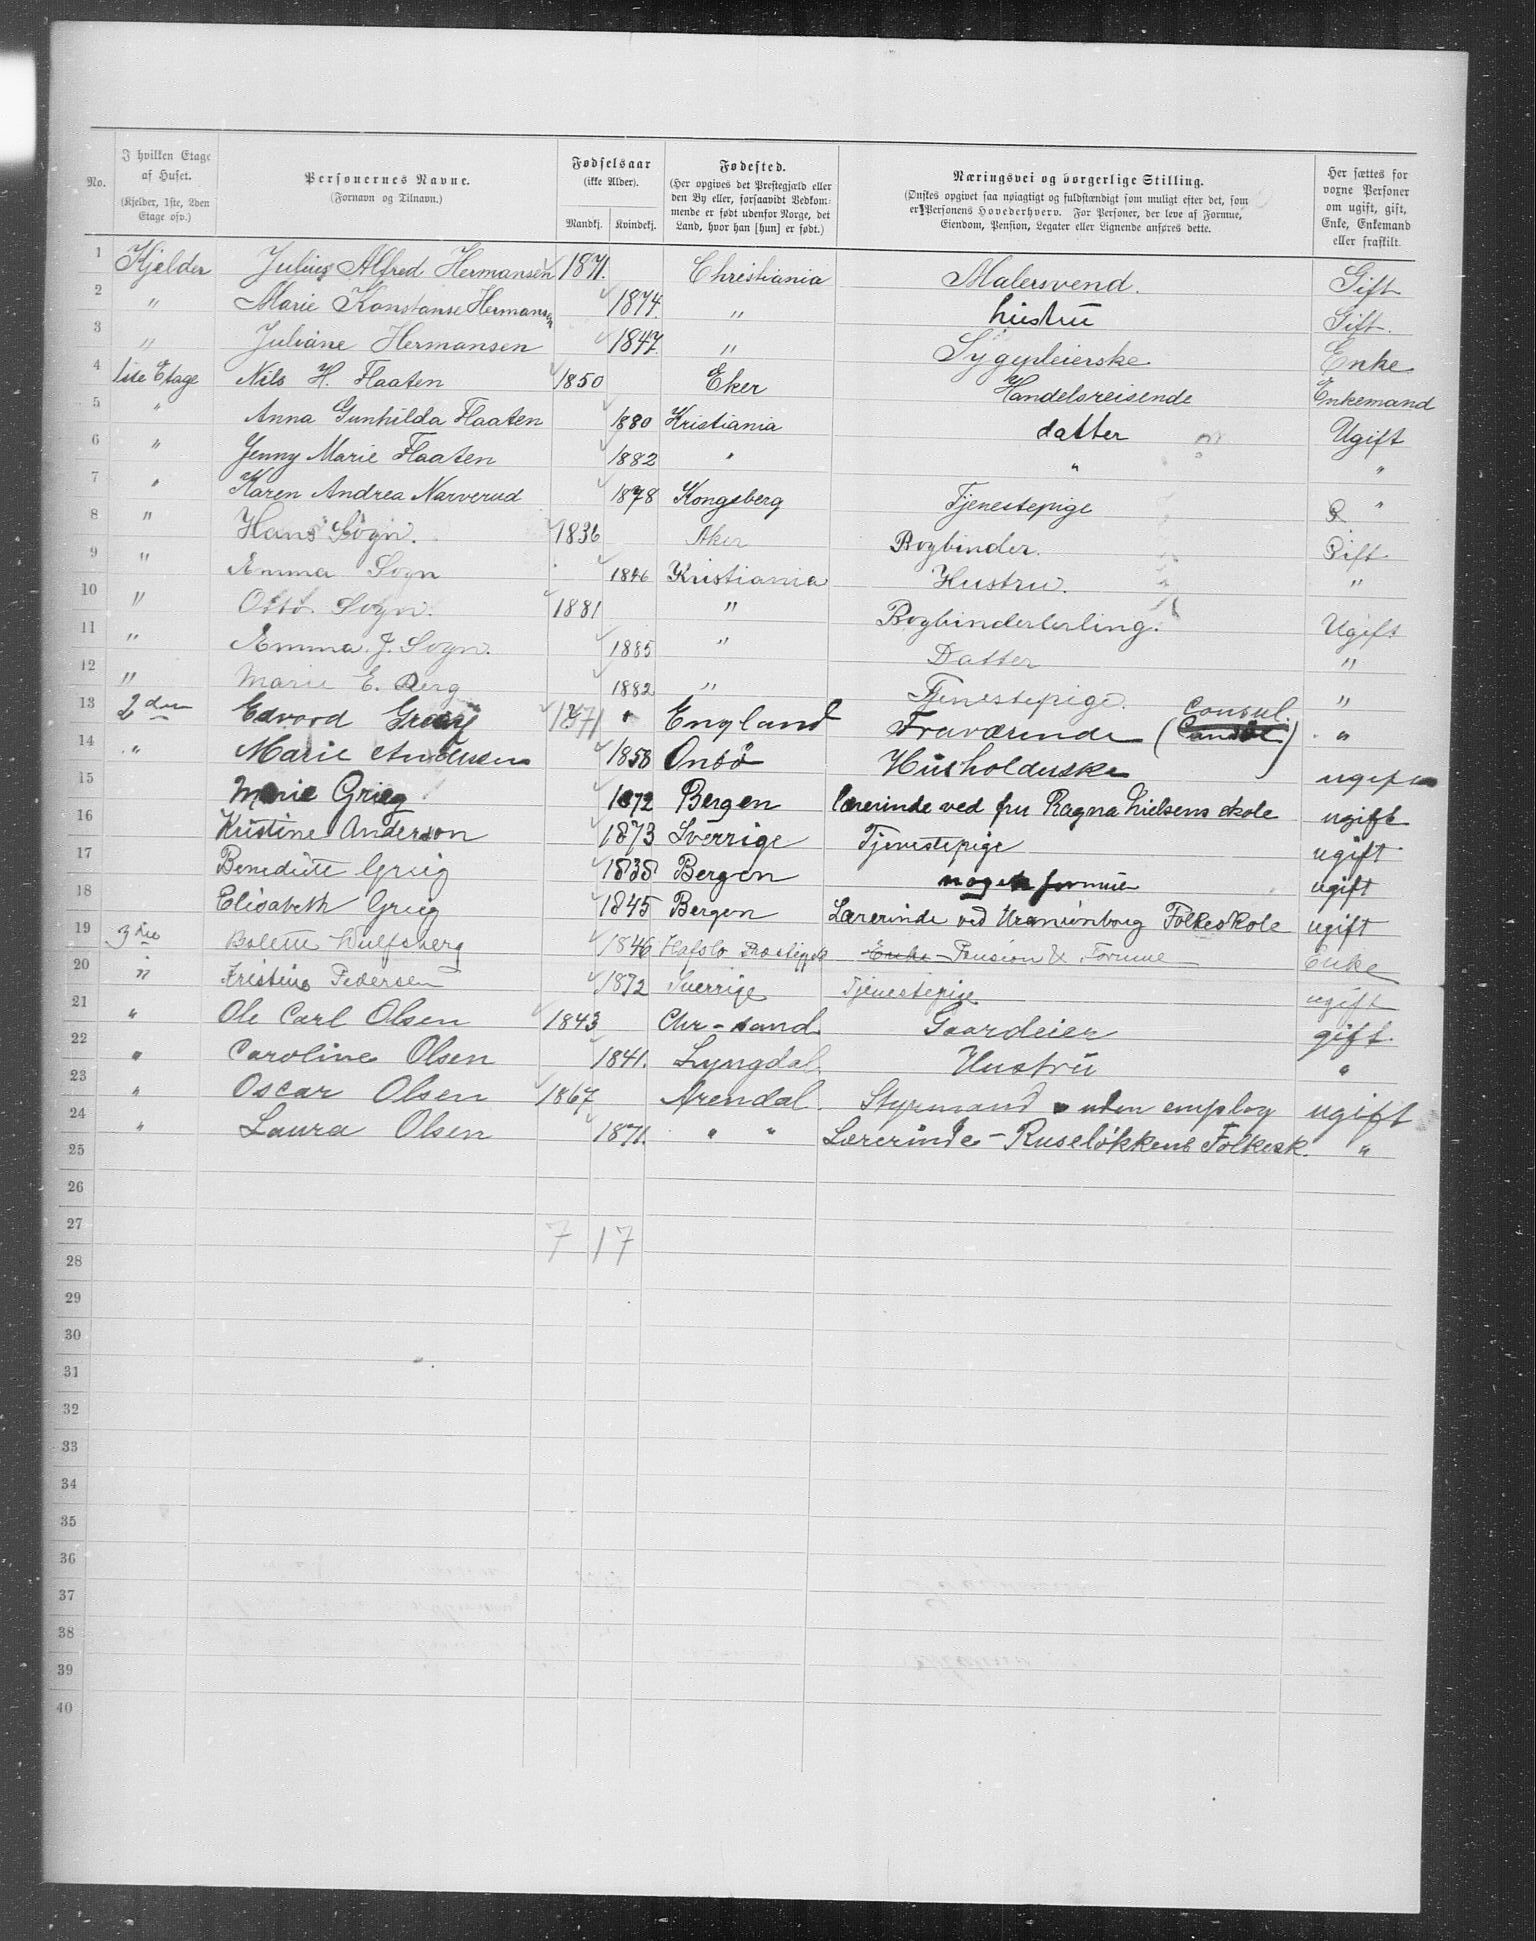 No.
I hvilken Etage af Huset. (Kjelder, 1ste, 2den Etage osv.)
Personernes Navne. (Fornavn og Tilnavn.)
Fødselsaar (ikke Alder). Mandkj. Kvindekj.
Fødested. (Her opgives det Prestegjæld eller den By eller, forsaavidt Vedkommende er født udenfor Norge, det Land, hvor han [hun] er født.)
Næringsvei og borgerlige Stilling. (Ønskes opgivet saa nøiagtigt og fuldstændigt som muligt efter det, som er Personens Hovederhverv. For Personer, der leve af Formue, Eiendom, Pension, Legater eller Lignende anføres dette.
Her sættes for voxne Personer om ugift, gift, Enke, Enkemand eller fraskilt.
1 Kjelder Julius Alfred Hermansen 1871. Christiania Malersvend. Gift
2 " Marie Konstanse Hermansen 1874. " hustru Gift.
3 " Juliane Hermansen 1847 " Sygepleierske Enke
4 1ste Etage Nils H. Flaaten 1850 Eker Handelsreisende Enkemand
5 " Anna Gunhilda Flaaten 1880 Kristiania datter Ugift
6 " Jenny Marie Flaaten 1882 " " "
7 " Karen Andrea Narverud 1878 Kongsberg Tjenestepige "
8 " Hans Sogn. 1836 Aker Bogbinder. Gift
9 " Emma Sogn 1846 Kristiania Hustru. "
10 " Otto Sogn. 1881 " Bogbinderlerling. Ugift
11 " Emma J. Sogn. 1885 " Datter "
12 " Marie E. Berg 1882 " Tjenestepige. "
13 2den Edvard Grieg 1871 " England Fraværende (Consul.) "
14 " Marie Andersen 1858 Onsø Husholderske ugift
15 Marie Grieg 1872 Bergen lærerinde ved fru Ragna Nielsens skole ugift
16 Kristine Anderson 1873 Sverrige Tjenestepige ugift
17 Benedicte Grieg 1838 Bergen nogen formue ugift
18 Elisabeth Grieg 1845 Bergen Lærerinde ved Uranienborg Folkeskole ugift
19 3die Bolette Wulfsberg 1846 Hafslo Præstegjeld Enke Pension & Formue Enke
20 " Kristine Pedersen 1872 Sverrige Tjenestepige ugift
21 " Ole Carl Olsen 1843 Chr-sand. Gaardeier gift.
22 " Caroline Olsen 1841. Lyngdal. Hustru "
23 " Oscar Olsen 1867 Arendal. Styrmand uden employ ugift
24 " Laura Olsen 1871. " " Lærerinde - Ruseløkkens Folkesk. "
25
26
27
7 17
28
29
30
31
32
33
34
35
36
37
38
39
40